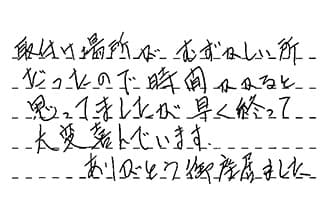 取付け場所がむずかしい所
だったので時間かかると
思ってましたが早く終って
大変喜んでいます.
ありがとう御座居ました